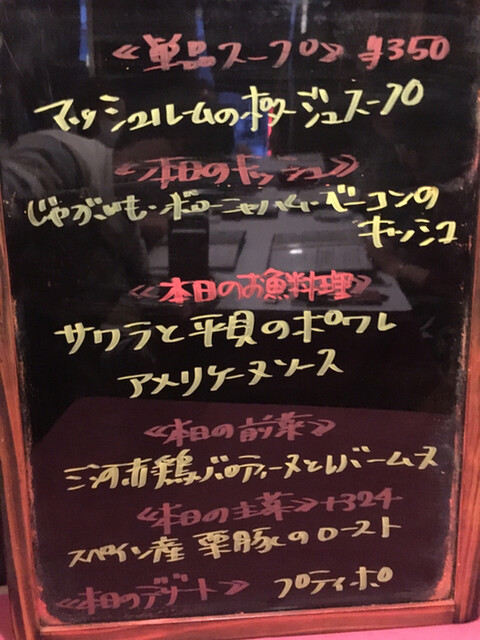 ≪単品スープ≫ ¥350
マッシュルームのポタージュスープ
≪本日のキッシュ≫
じゃがいも・ベーコンの
キッシュ
≪本日のお魚料理≫
サワラと平貝のポワレ
アメリケーヌソース
≪本日の前菜≫
三河赤鶏バロティーヌとレバームース
≪本日の主菜≫+324
スペイン産 栗豚のロースト
≪本日のデザート≫ プティポ